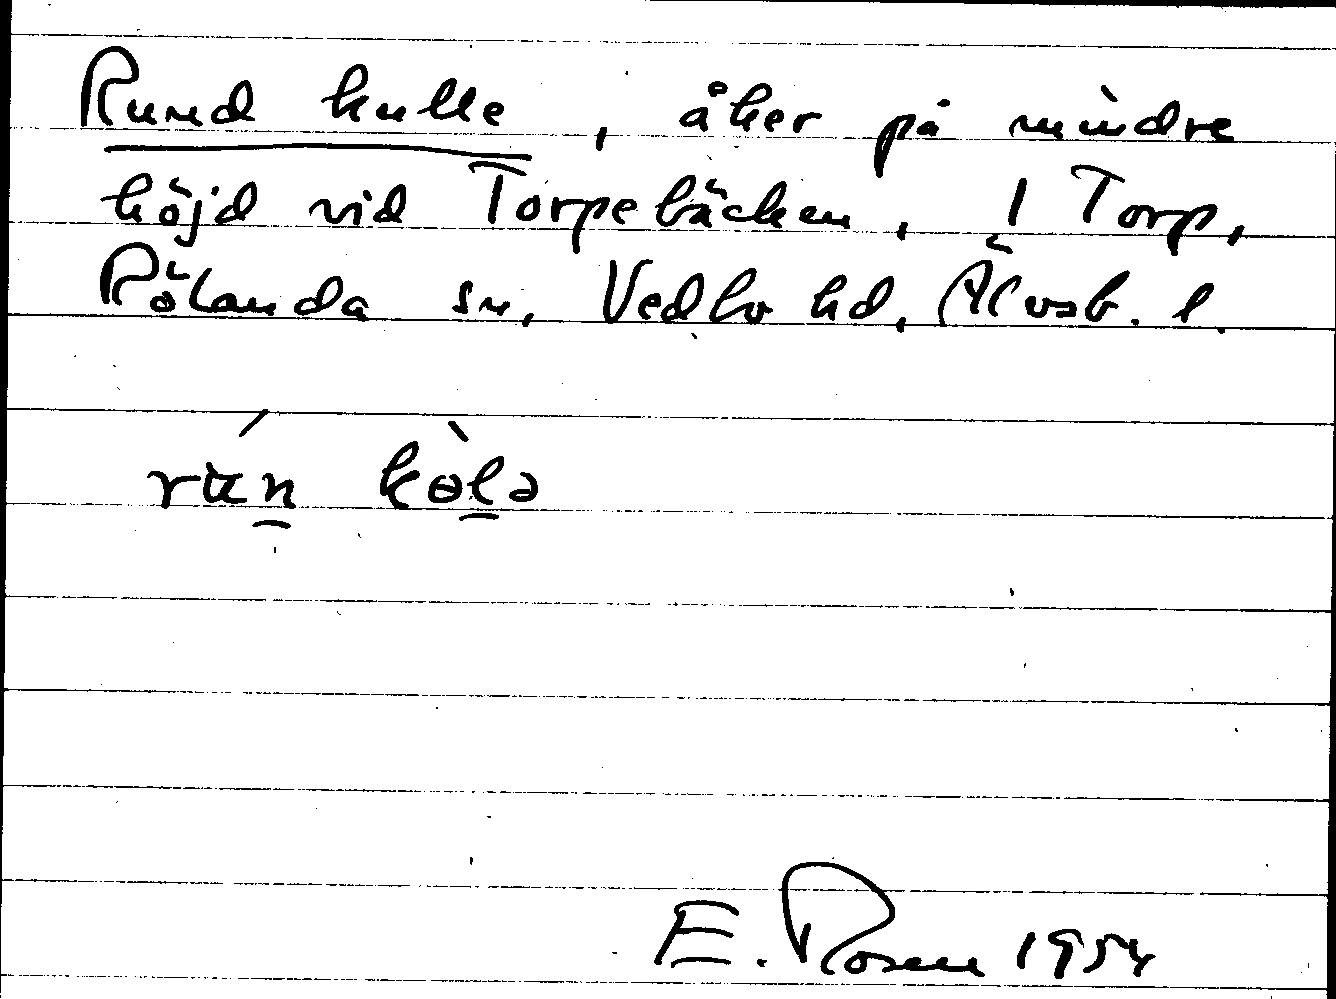 Rund kulle, åker på mindre
höjd vid Torpebäcken, 1 Torp,
Rölanda sn, Vedbo hd, Älvsb. l.
rʉ́n̲ kɵ̀l̲ə
E. Rosen 1954